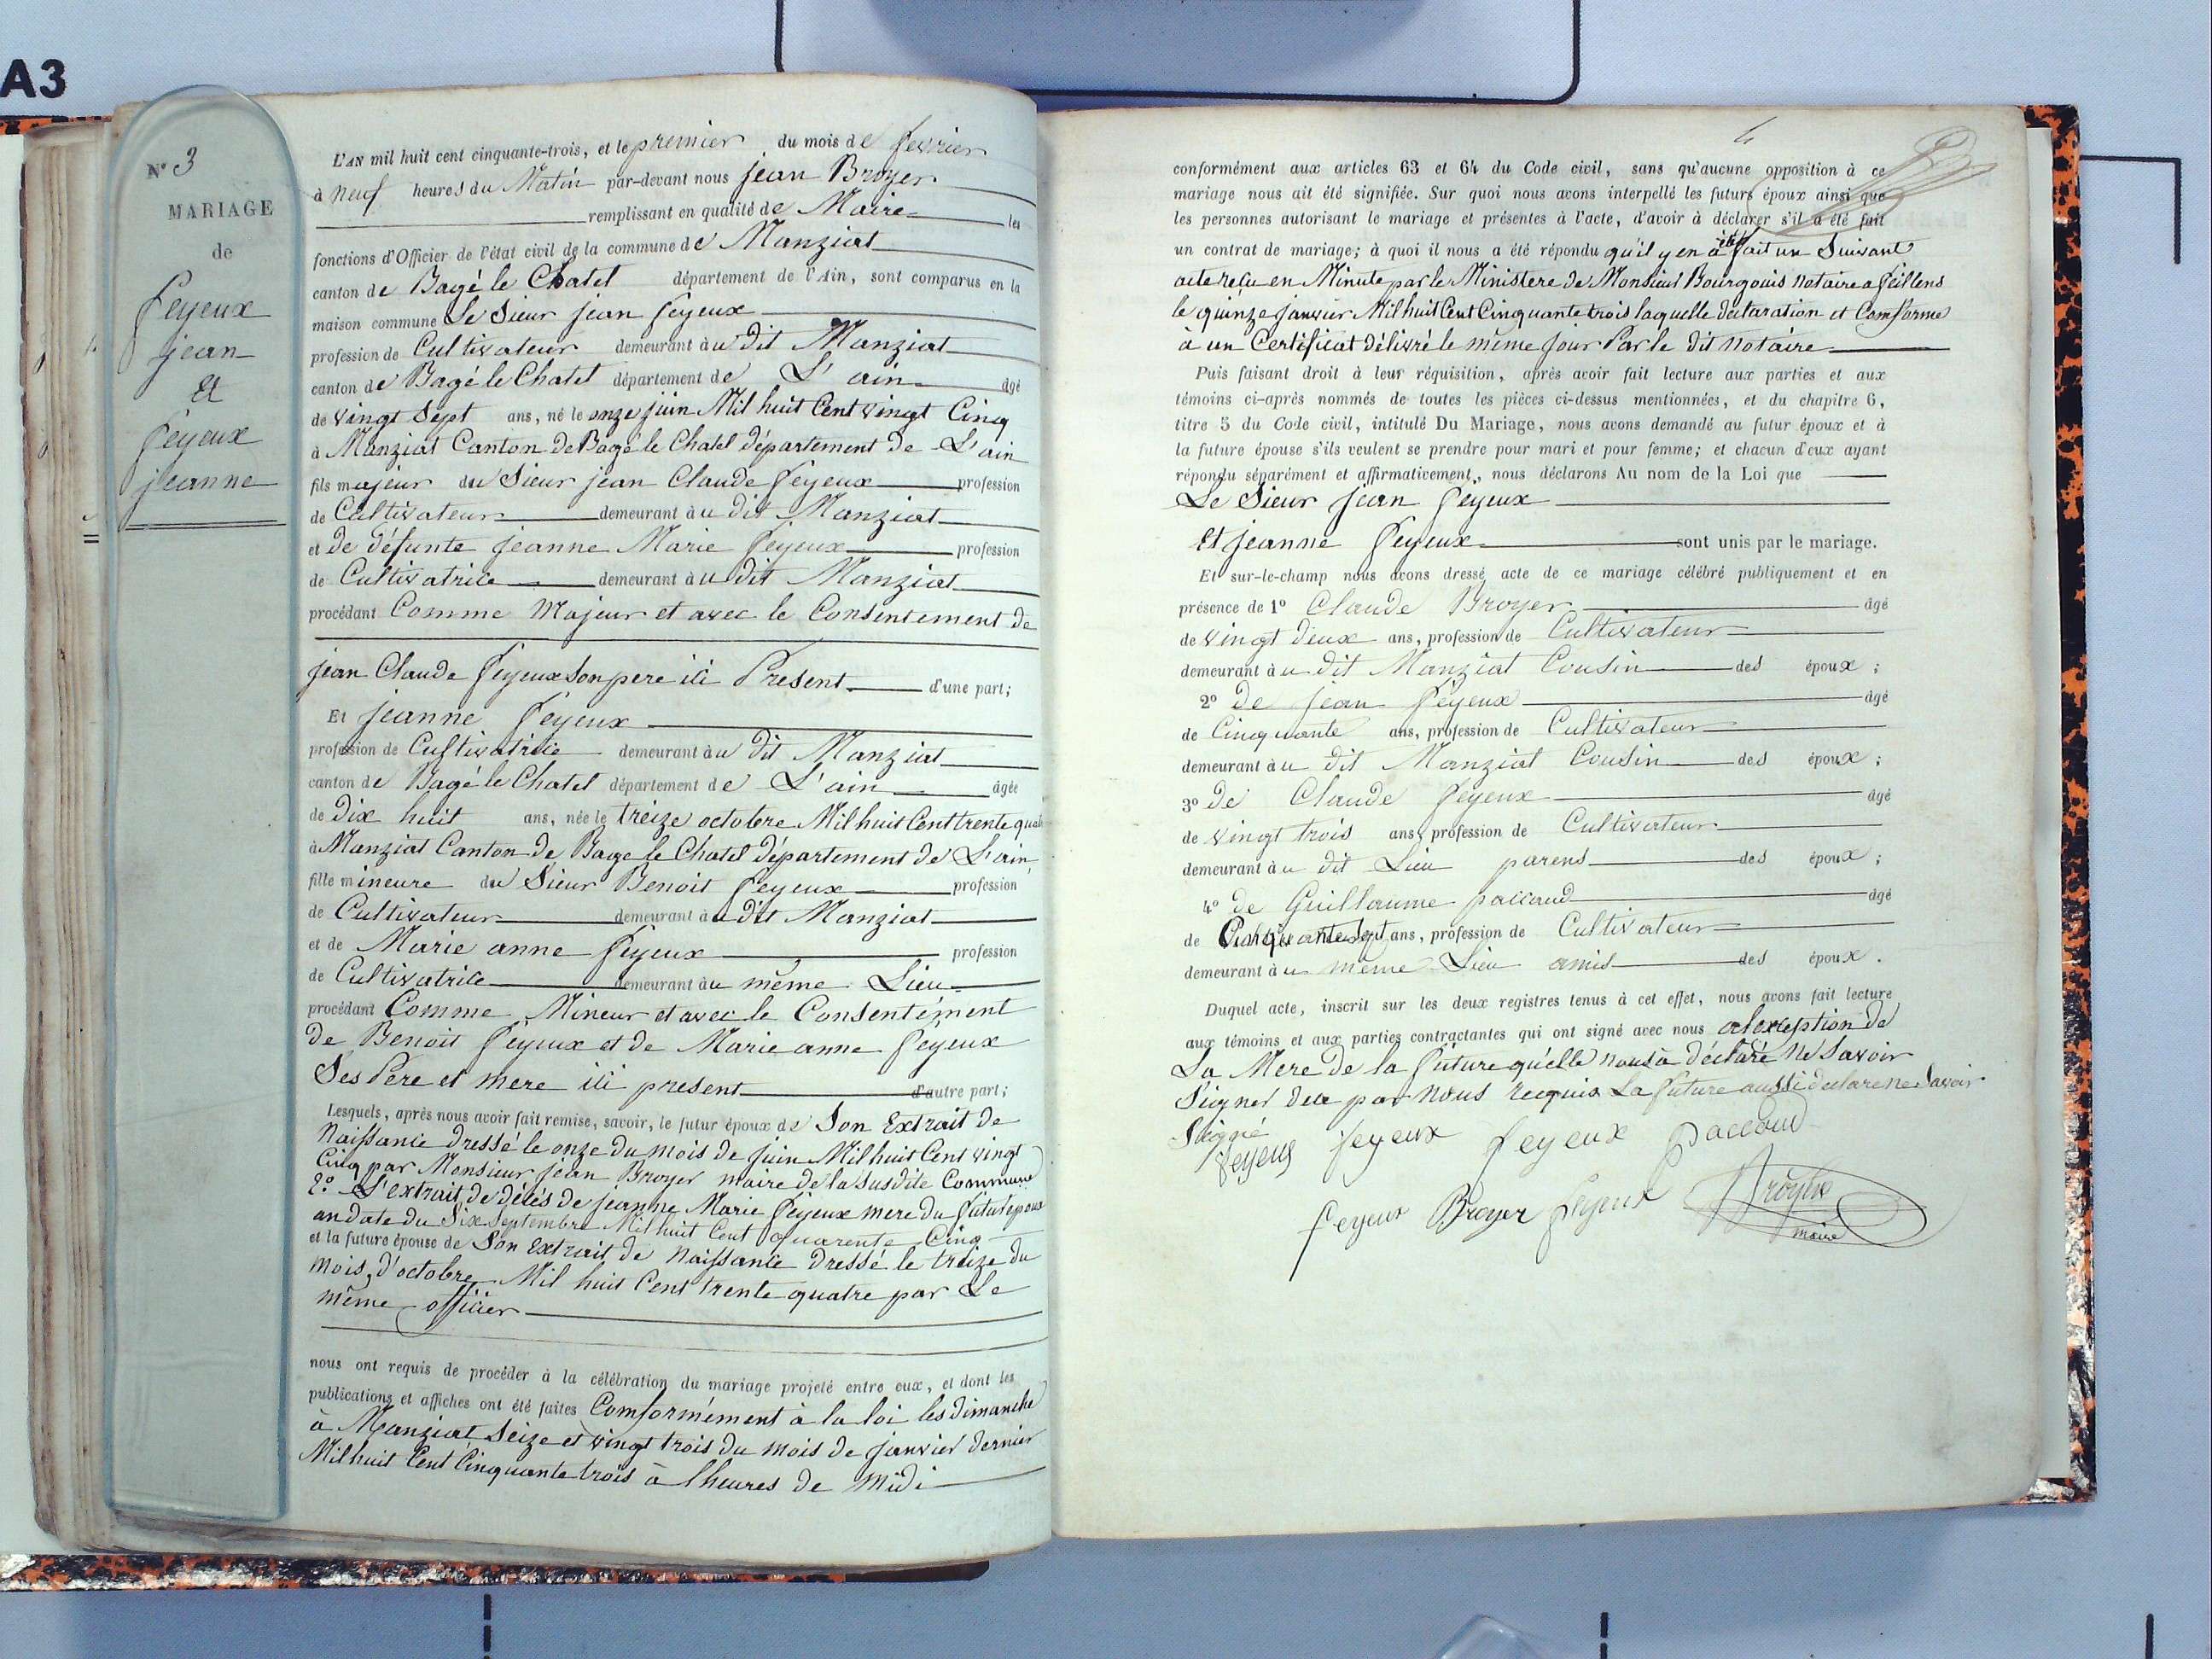 A3
N° 3
MARIAGE
de
feyeux
jean
Et
feyeux
jeanne
L'AN mil huit cent cinquante-trois, et le premier du mois de fevrier
à neuf heures du Matin par-devant nous jean Broyer
remplissant en qualité de Maire les
fonctions d'Officier de l'état civil de la commune de Manziat
canton de Bagé le Chatel département de l'Ain, sont comparus en la
maison commune Le Sieur jean feyeux
profession de Cultivateur demeurant à u dit Manziat
canton de Bagé le Chatel département de L'ain âgé
de vingt Sept ans, né le onze juin Mil huit Cent vingt Cinq
à Manziat Canton de Bagé le Chatel département de L'ain
fils majeur du Sieur jean Claude feyeux profession
de Cultivateur demeurant à u dit Manziat
et de défunte jeanne Marie feyeux profession
de Cultivatrice demeurant à u dit Manziat
procédant Comme Majeur et avec le Consentement de
jean Claude feyeux Son pere ici Present d'une part;
Et jeanne feyeux
profession de Cultivatrice demeurant à u dit Manziat
canton de Bagé le Chatel département de L'ain âgée
de dix huit ans, née le treize octobre Mil huit Cent trente quat
à Manziat Canton de Bage le Chatel département de L'ain
fille mineure du Sieur Benoit feyeux profession
de Cultivateur demeurant à u dit Manziat
et de Marie anne feyeux profession
de Cultivatrice demeurant à u même Lieu
procédant Comme Mineur et avec le Consentement
de Benoit feyeux et de Marie anne feyeux
Ses Pere et mere ici present d'autre part;
Lesquels, après nous avoir fait remise, savoir, le futur époux de Son Extrait de
Naissance dressé le onze du mois de juin Mil huit Cent vingt
Cinq par Monsieur jean Broyer maire de la susdite Commune
2° L'extrait de décès de jeanne Marie feyeux mere du futur epoux
an date du Six Septembre Mil huit Cent quarente Cinq
et la future épouse de Son Extrait de Naissance dressé le treize du
mois d'octobre Mil huit Cent trente quatre par Le
même officier
nous ont requis de procéder à la célébration du mariage projeté entre eux, et dont les
publications et affiches ont été faites Comformément à la loi les dimanche
à Manziat Seize et vingt trois du mois de janvier dernier
Mil huit Cent Cinquante trois à lheures de midi
4
conformément aux articles 63 et 64 du Code civil, sans qu'aucune opposition à ce
mariage nous ait été signifiée. Sur quoi nous avons interpellé les futurs époux ainsi que
les personnes autorisant le mariage et présentes à l'acte, d'avoir à déclarer s'il a été fait
un contrat de mariage; à quoi il nous a été répondu qu'il y en a été fait un Suivant
acte reçu en Minute par le Ministere de Monsieur Bourgouis notaire a feillens
le quinze janvier Mil huit Cent Cinquante trois laquelle declaration et Comforme
à un Certificat délivré le même jour Par le dit notaire
Puis faisant droit à leur réquisition, après avoir fait lecture aux parties et aux
témoins ci-après nommés de toutes les pièces ci-dessus mentionnées, et du chapitre 6,
titre 5 du Code civil, intitulé Du Mariage, nous avons demandé au futur époux et à
la future épouse s'ils veulent se prendre pour mari et pour femme; et chacun d'eux ayant
répondu séparément et affirmativement, nous déclarons Au nom de la Loi que
Le Sieur jean feyeux
Et jeanne feyeux sont unis par le mariage.
Et sur-le-champ nous avons dressé acte de ce mariage célébré publiquement et en
présence de 1° Claude Broyer âgé
de vingt deux ans, profession de Cultivateur
demeurant à u dit Manziat Cousin des époux;
2° De jean feyeux âgé
de Cinquante ans, profession de Cultivateur
demeurant à u dit Manziat Cousin des époux;
3° De Claude feyeux âgé
de vingt trois ans, profession de Cultivateur
demeurant à u dit Lieu parens des époux;
4° de Guillaume paccaud âgé
de Cinquante Sept ans, profession de Cultivateur
demeurant à u même Lieu amis des époux.
Duquel acte, inscrit sur les deux registres tenus à cet effet, nous avons fait lecture
aux témoins et aux parties contractantes qui ont signé avec nous al exception de
La Mere de la future qu'elle nous à déclaré Ne Savoir
Signer de ce par nous requis La future aussi declare ne Savoir
Signé
feyeux feyeux feyeux paccaud
feyeux Broyer feyeux Broyer
maire